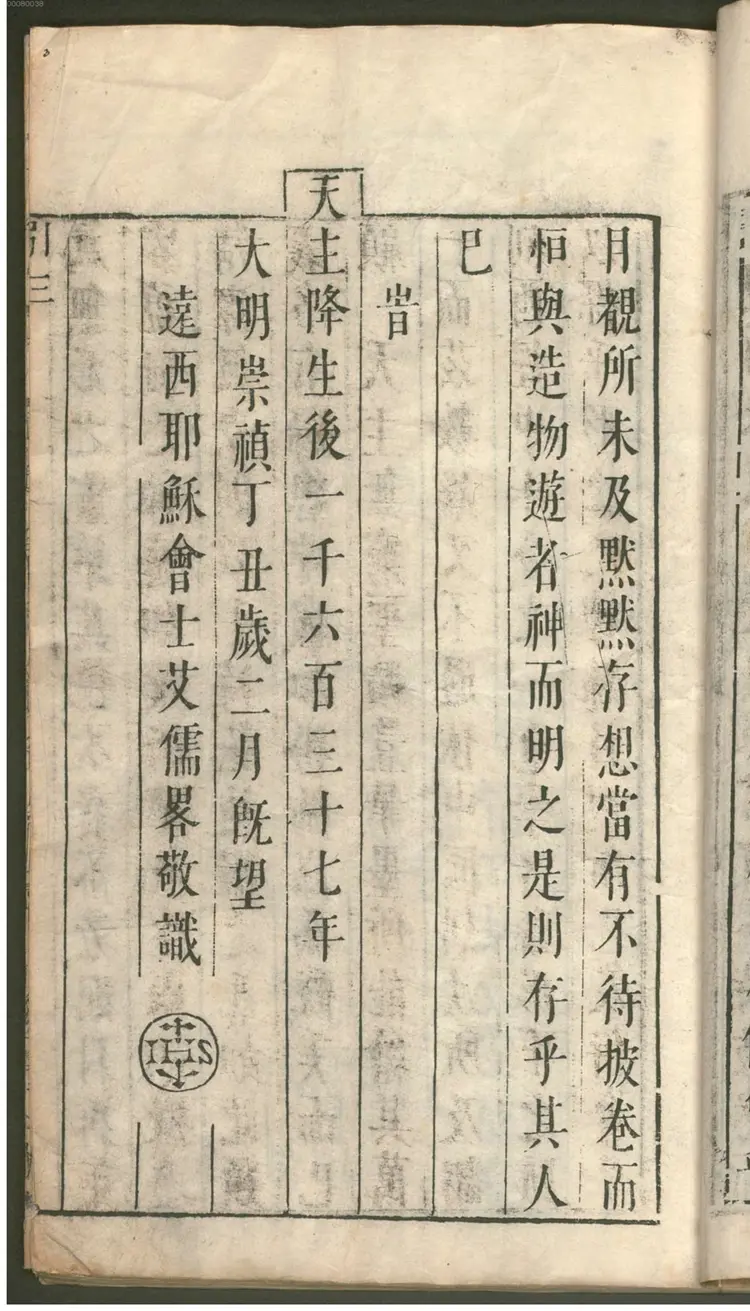 目覩所未及默默存想當有不待披卷而
恒與造物遊者神而明之是則存乎其人
已
旹
天主降生後一千六百三十七年
大明崇禎丁丑歲二月旣望
遠西耶穌會士艾儒畧敬識
IHS
引 三
00080038